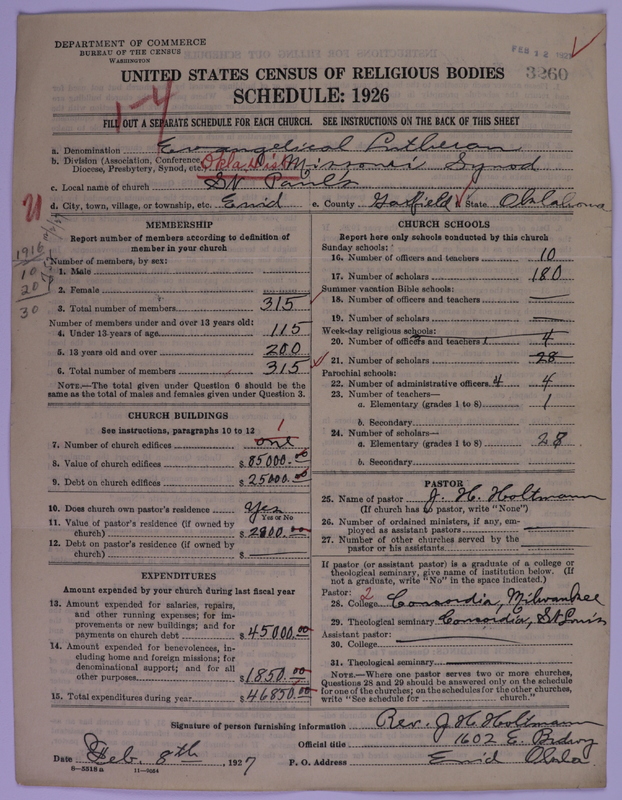 DEPARTMENT OF COMMERCE
BUREAU OF THE CENSUS
WASHINGTON
FEB 12 1927
3260
UNITED STATES CENSUS OF RELIGIOUS BODIES
SCHEDULE: 1926
1-4
FILL OUT A SEPARATE SCHEDULE FOR EACH CHURCH. SEE INSTRUCTIONS ON THE BACK OF THIS SHEET
a. Denomination Evangelical Lutheran
b. Division (Association, Conference, Diocese, Presbytery, Synod, etc. Okla Dist Missouri Synod
c. Local name of church St Paul's
d. City, town, village, or township, etc. Enid e. County Garfield State Oklahoma
1916
10
20
30
MEMBERSHIP
Report number of members according to definition of
member in your church
Number of members, by sex:
1. Male
2. Female
3. Total number of members 315
Number of members under and over 13 years old:
4. Under 13 years of age 115
5. 13 years old and over 200
6. Total number of members 315
NOTE.—The total given under Question 6 should be the
same as the total of males and females given under Question 3.
CHURCH BUILDINGS
See instructions, paragraphs 10 to 12
1
7. Number of church edifices one
8. Value of church edifices $ 85000.00
9. Debt on church edifices $ 25000.00
10. Does church own pastor's residence yes
Yes or No
11. Value of pastor's residence (if owned by
church) $ 2800.00
12. Debt on pastor's residence (if owned by
church) $
EXPENDITURES
Amount expended by your church during last fiscal year
13. Amount expended for salaries, repairs,
and other running expenses; for im-
provements or new buildings; and for
payments on church debt $ 45000.00
14. Amount expended for benevolences, in-
cluding home and foreign missions; for
denominational support; and for all
other purposes $ 1850.00
15. Total expenditures during year $ 46850.00
CHURCH SCHOOLS
Report here only schools conducted by this church
Sunday schools:
16. Number of officers and teachers 10
17. Number of scholars 180
Summer vacation Bible schools:
18. Number of officers and teachers
19. Number of scholars
Week-day religious schools:
20. Number of officers and teachers 4
21. Number of scholars 28
Parochial schools:
22. Number of administrative officers 4 4
23. Number of teachers—
a. Elementary (grades 1 to 8) 1
b. Secondary
24. Number of scholars—
a. Elementary (grades 1 to 8) 28
b. Secondary
PASTOR
25. Name of pastor J. H. Holtmann
(If church has no pastor, write "None")
26. Number of ordained ministers, if any, em-
ployed as assistant pastors
27. Number of other churches served by the
pastor or his assistants
If pastor (or assistant pastor) is a graduate of a college or
theological seminary, give name of institution below. (If
not a graduate, write "No" in the space indicated.)
Pastor: 2
28. College Concordia, Milwaukee
29. Theological seminary Concordia, St Louis
Assistant pastor:
30. College
31. Theological seminary
NOTE.—Where one pastor serves two or more churches,
Questions 28 and 29 should be answered only on the schedule
for one of the churches; on the schedules for the other churches,
write "See schedule for church."
Signature of person furnishing information Rev. J H Holtmann
Official title 1602 E. Bdwy
Date Feb. 8th, 1927 P. O. Address Enid Okla
8—5518 a 11—9064